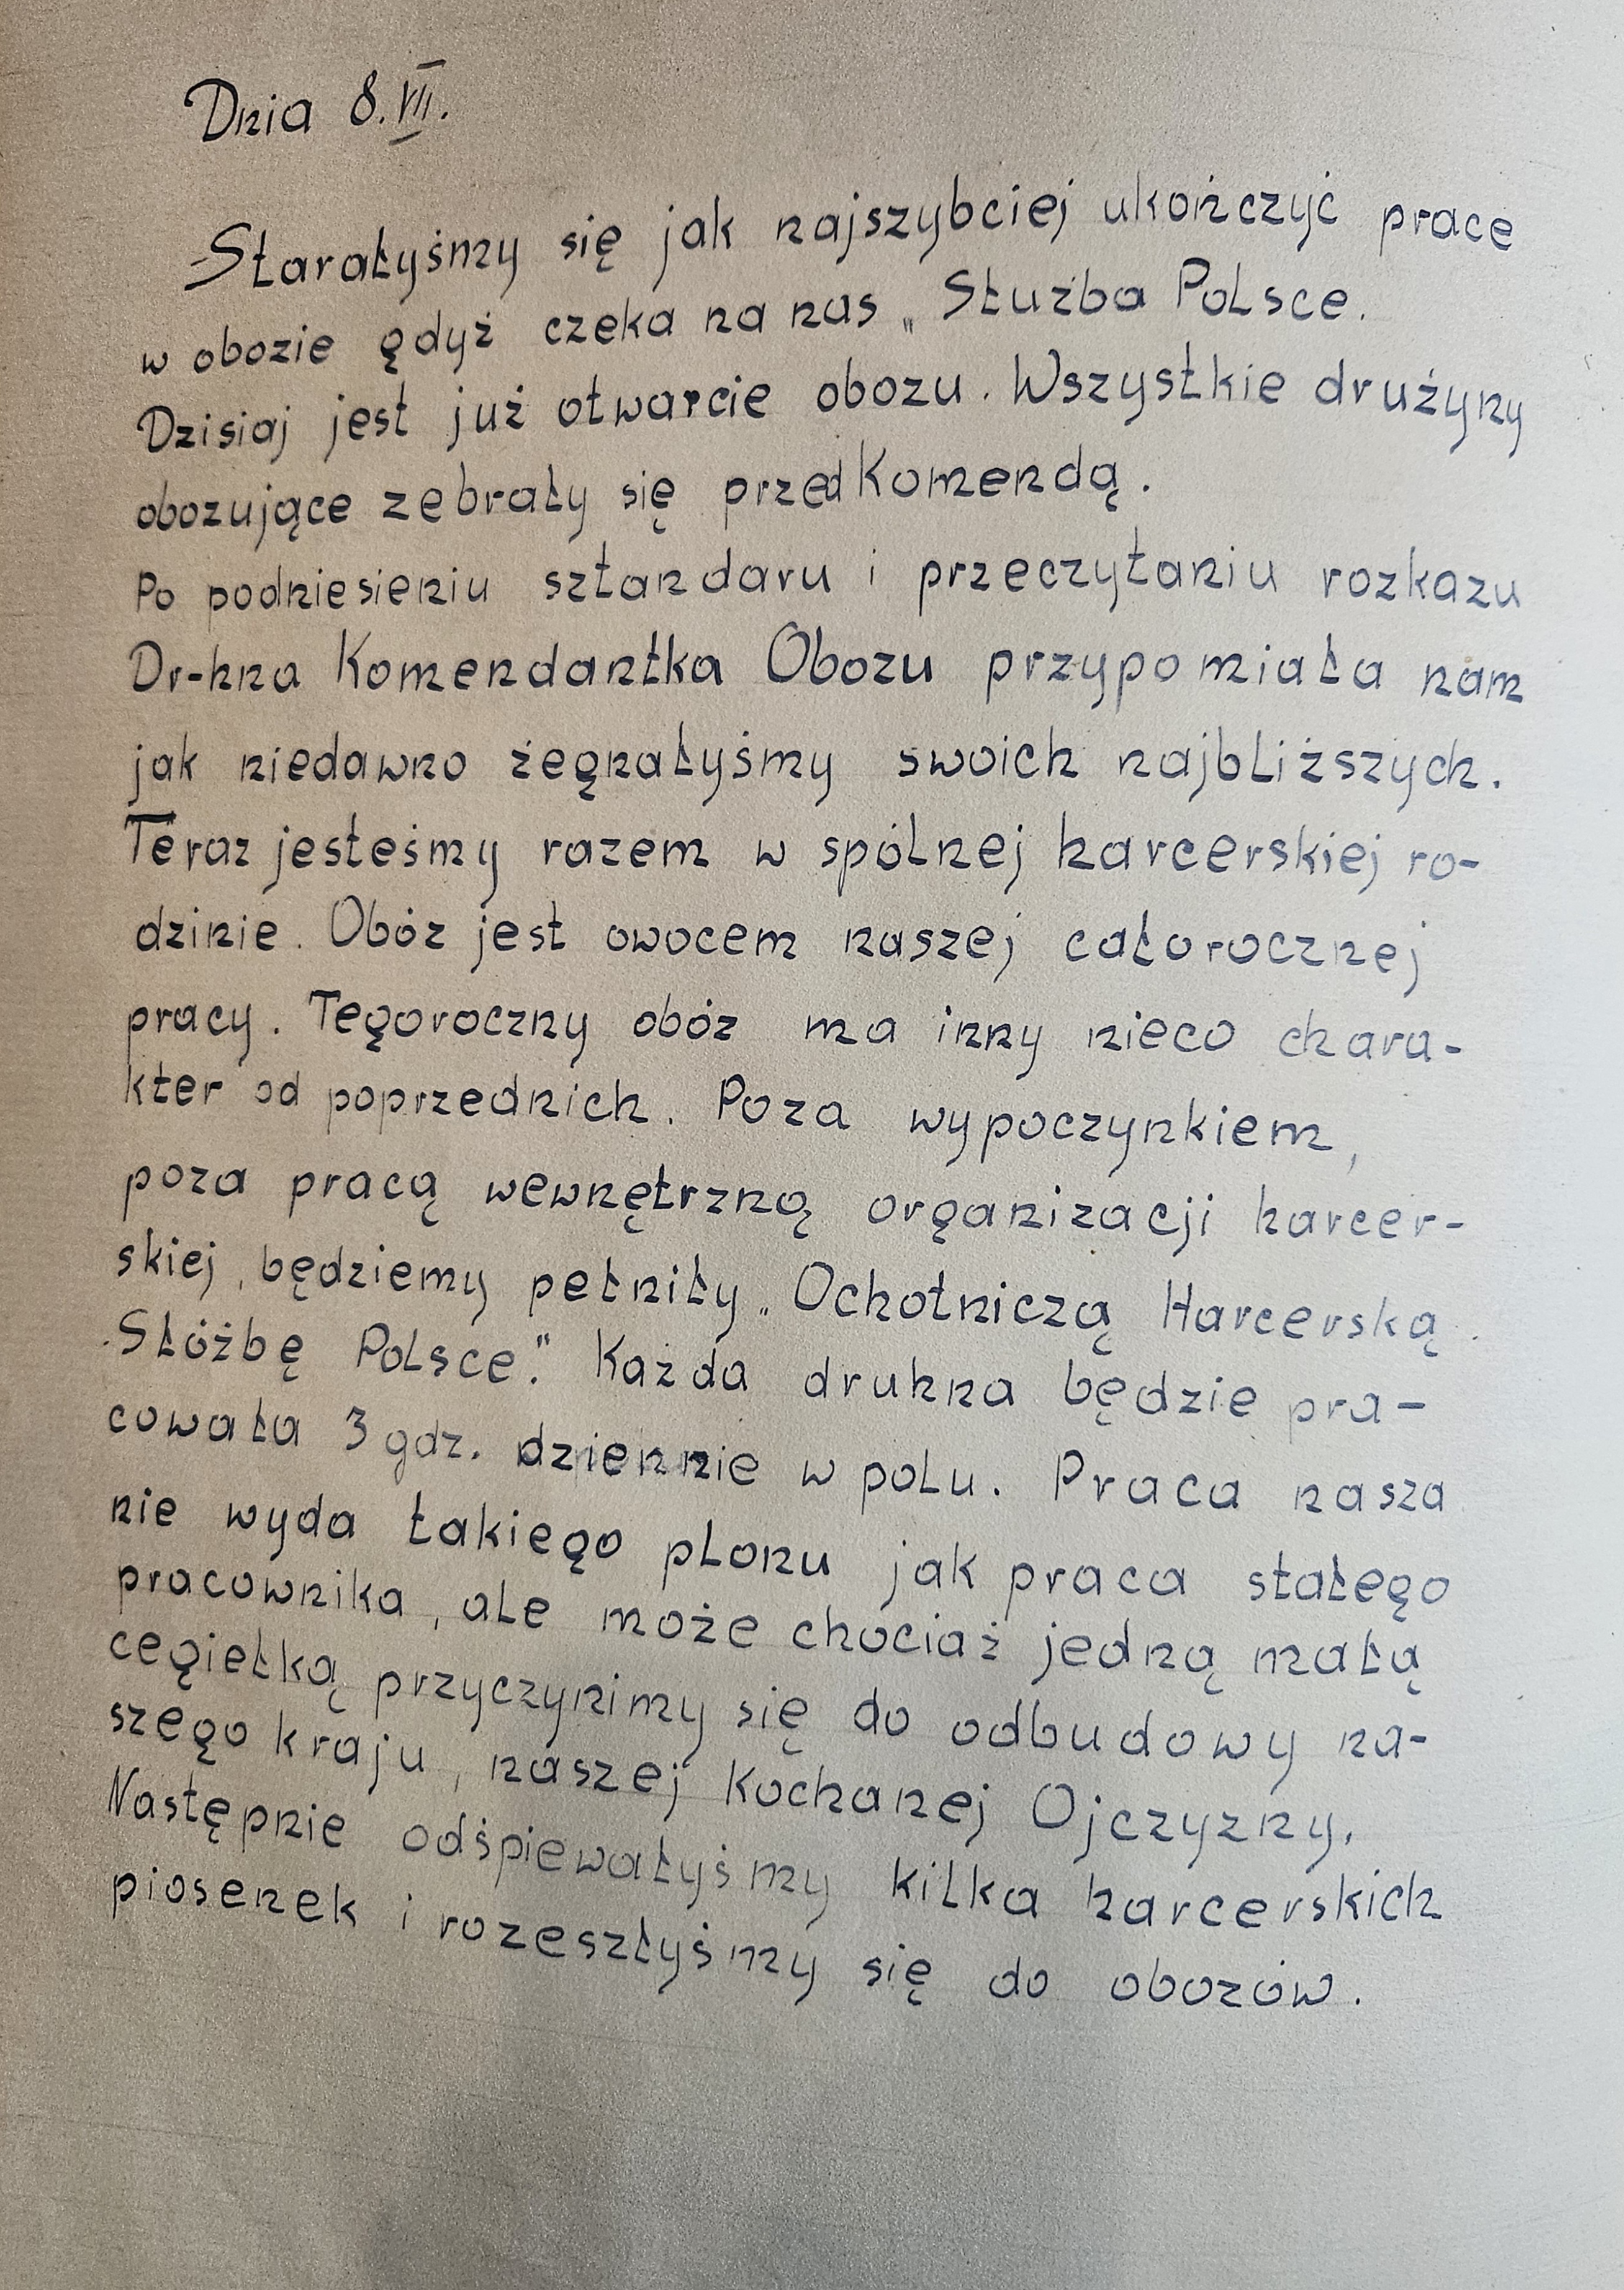 Dnia 8.VII.
Starałyśmy się jak najszybciej ukończyć prace
w obozie gdyż czeka na nas „Służba Polsce.
Dzisiaj jest już otwarcie obozu. Wszystkie drużyny
obozujące zebrały się przed Komendą.
Po podniesieniu sztandaru i przeczytaniu rozkazu
Dr-hna Komendantka Obozu przypomiała nam
jak niedawno żegnałyśmy swoich najbliższych.
Teraz jesteśmy razem w spólnej harcerskiej ro-
dzinie. Obóz jest owocem naszej całorocznej
pracy. Tegoroczny obóz ma inny nieco chara-
kter od poprzednich. Poza wypoczynkiem,
poza pracą wewnętrzną organizacji harcer-
skiej, będziemy pełniły „Ochotniczą Harcerską
Słóżbę Polsce." Każda druhna będzie pra-
cowała 3 gdz. dziennie w polu. Praca nasza
nie wyda takiego plonu jak praca stałego
pracownika, ale może chociaż jedną małą
cegiełką przyczynimy się do odbudowy na-
szego kraju, naszej Kochanej Ojczyzny.
Następnie odśpiewałyśmy kilka harcerskich
piosenek i rozeszłyśmy się do obozów.